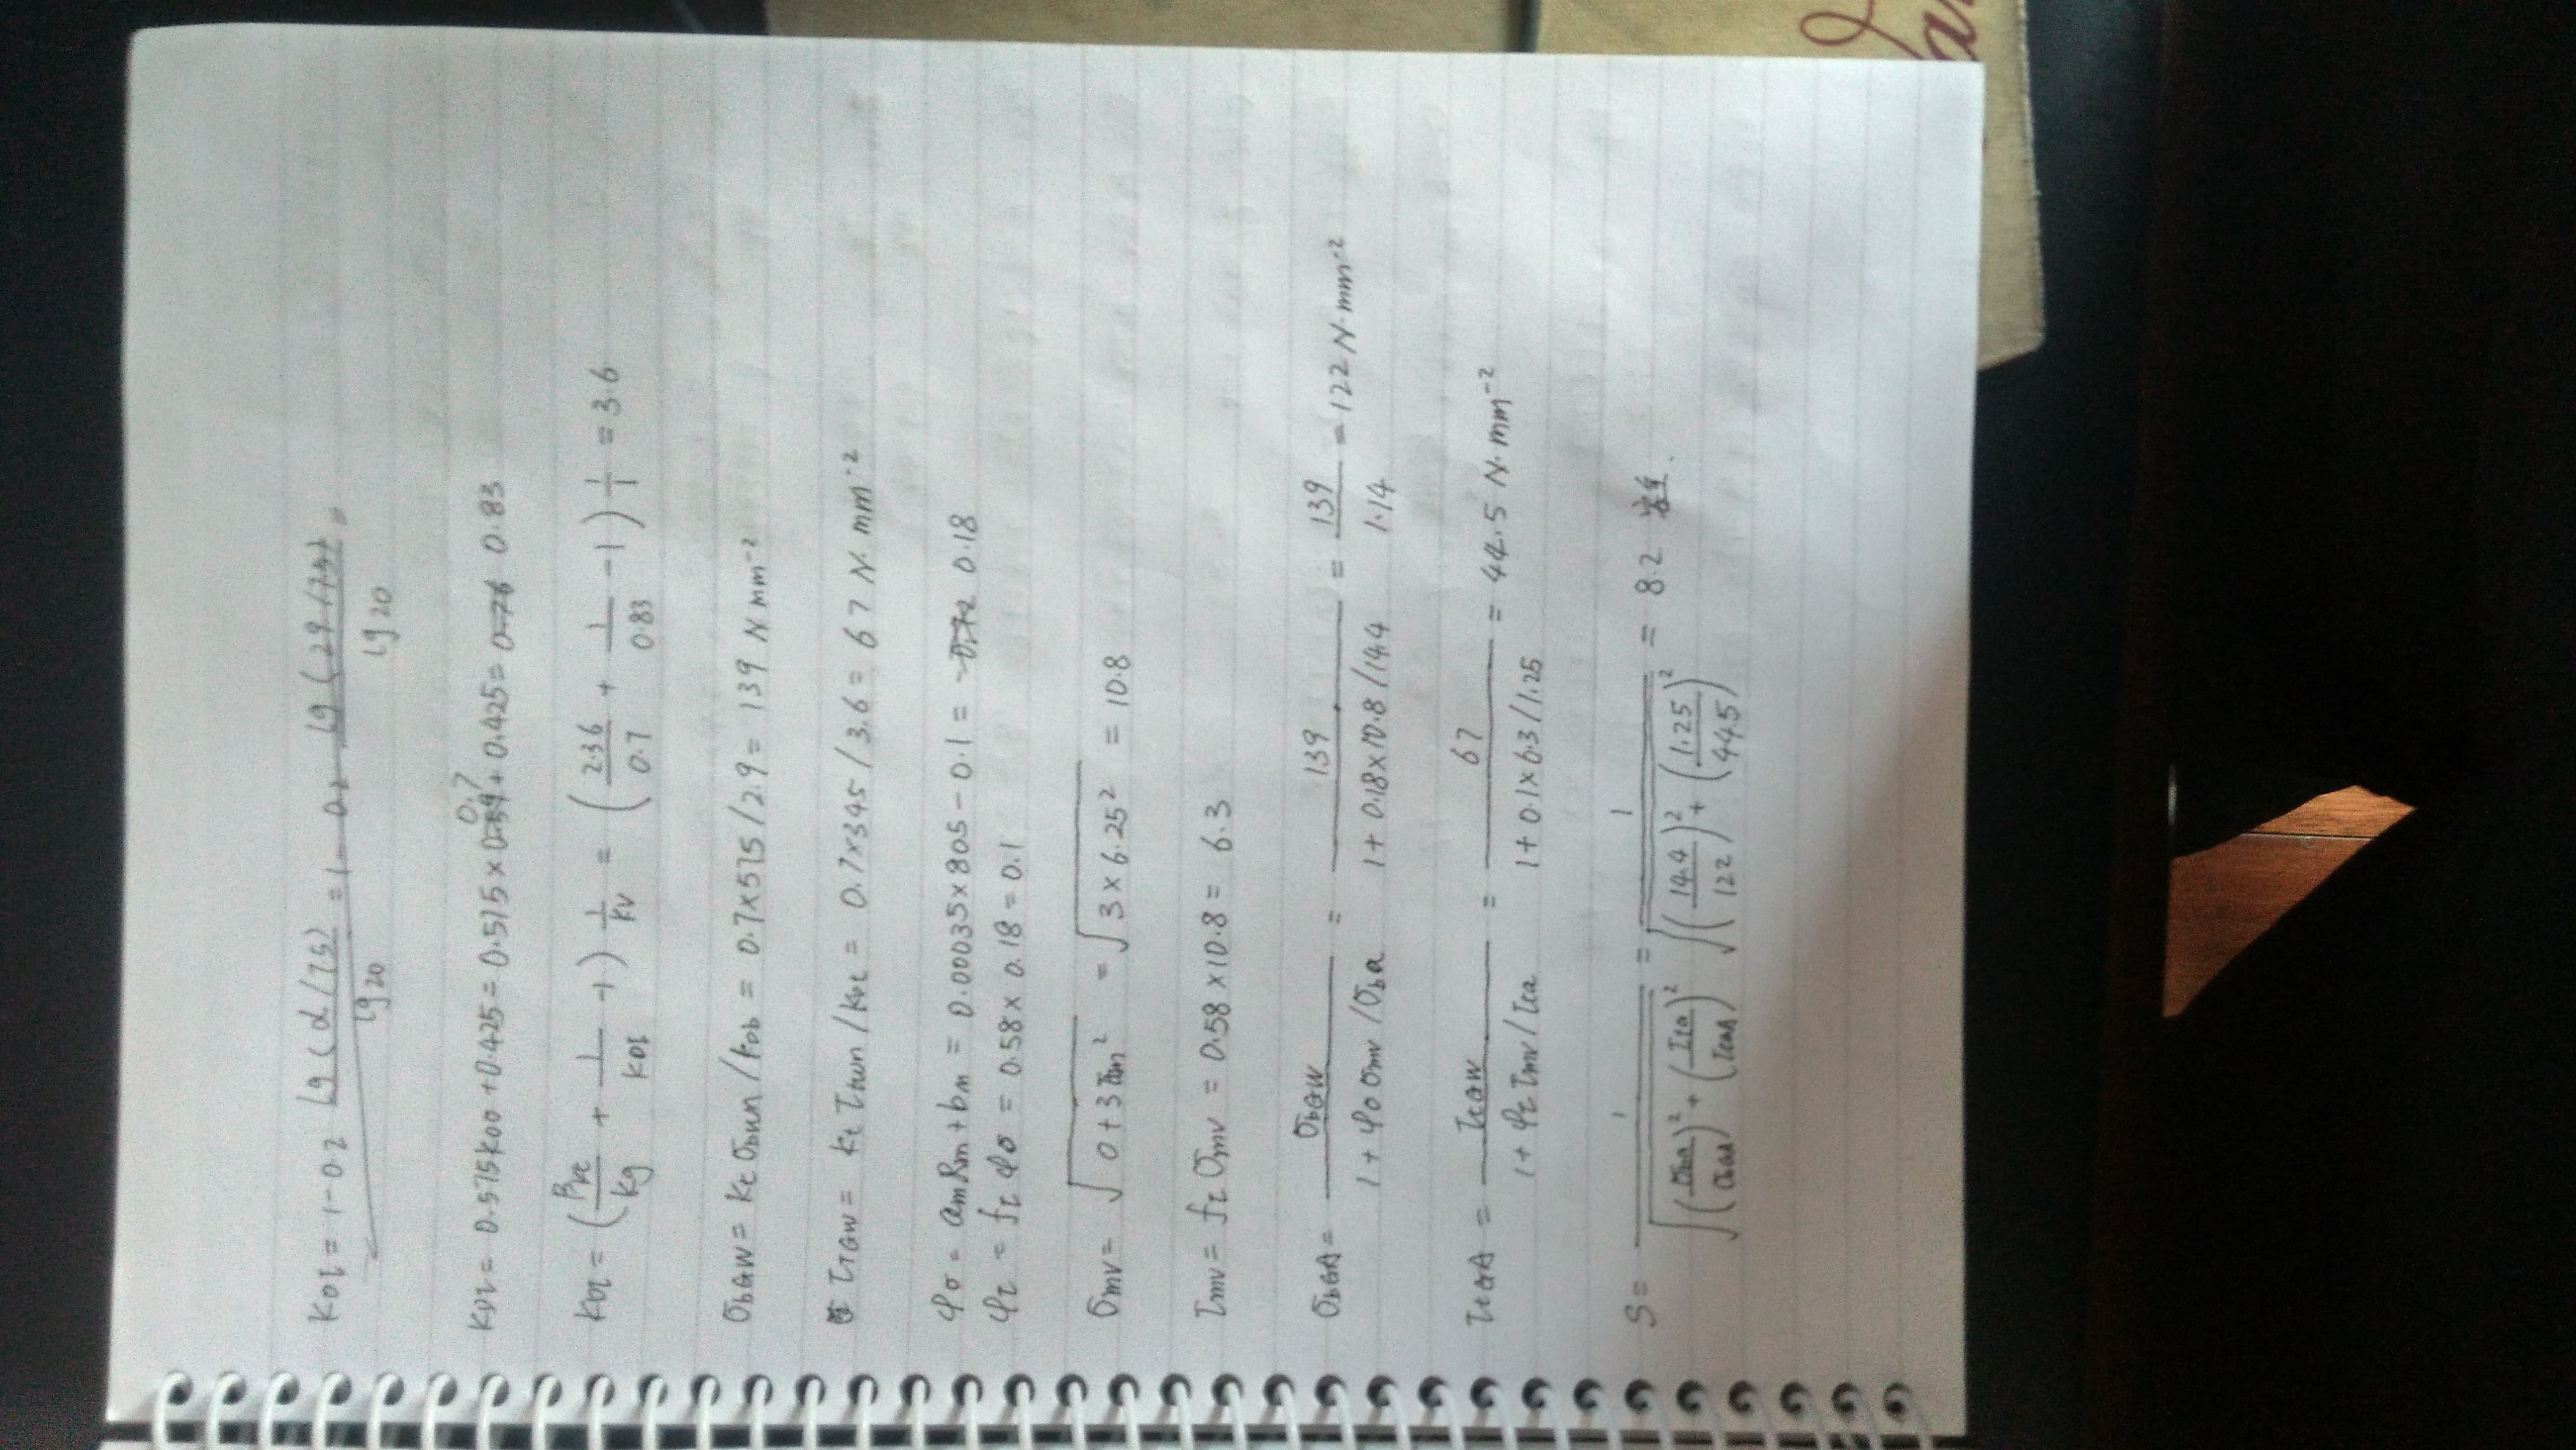 K0τ = 1 - 0.2 lg(d/7.5)/lg20 = 1 - 0.2 lg(29/7.5)/lg20
K0τ = 0.575K0σ + 0.425 = 0.575 × 0.7 + 0.425 = 0.83
KDτ = (βkτ/kg + 1/K0τ - 1) 1/kv = (2.36/0.7 + 1/0.83 - 1) 1/1 = 3.6
σbGW = Kt σbwn / kDb = 0.7×575/2.9 = 139 N mm⁻²
τtGW = kt τtwn / kDt = 0.7×345/3.6 = 67 N·mm⁻²
φσ = amRm + bm = 0.00035×805 - 0.1 = 0.18
φτ = fτ φσ = 0.58 × 0.18 = 0.1
σmv = √(0 + 3τtm²) = √(3×6.25²) = 10.8
τmv = fτ σmv = 0.58 × 10.8 = 6.3
σbGA = σbGW/(1 + φσ σmv/σba) = 139/(1 + 0.18×10.8/14.4) = 139/1.14 = 122 N·mm⁻²
τtGA = τtGW/(1 + φτ τmv/τta) = 67/(1 + 0.1×6.3/1.25) = 44.5 N·mm⁻²
S = 1/√((σba/σbGA)² + (τta/τtGA)²) = 1/√((14.4/122)² + (1.25/44.5)²) = 8.2